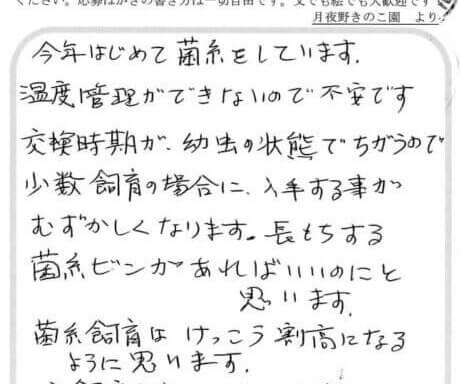 ください。応募はがきの書き方は一切自由です。文でも絵でも大歓迎です
月夜野きのこ園　より
今年はじめて菌糸をしています.
温度管理ができないので不安です
交換時期が、幼虫の状態でちがうので
少数飼育の場合に、入手する事が
むずかしくなります。長もちする
菌糸ビンがあればいいのにと
思います.
菌糸飼育は けっこう割高になる
ように思います.